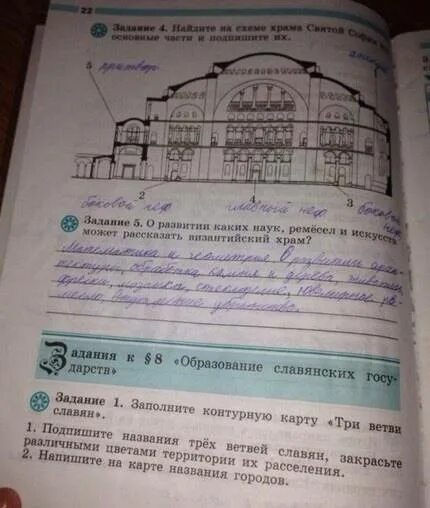 22
Задание 4. Найдите на схеме храма Святой Софии
основные части и подпишите их.
5 притвор
2
4
3
боковой неф
главный неф
боковой
неф
Задание 5. О развитии каких наук, ремёсел и искусств
может рассказать византийский храм?
Математика и геометрия О развитии архи-
тектуры, обработка камня и дерева,
фрески, мозаика, стеклоделие, ювелирное ре-
месло,
Задания к § 8 «Образование славянских госу-
дарств»
Задание 1. Заполните контурную карту «Три ветви
славян».
1. Подпишите названия трёх ветвей славян, закрасьте
различными цветами территории их расселения.
2. Напишите на карте названия городов.